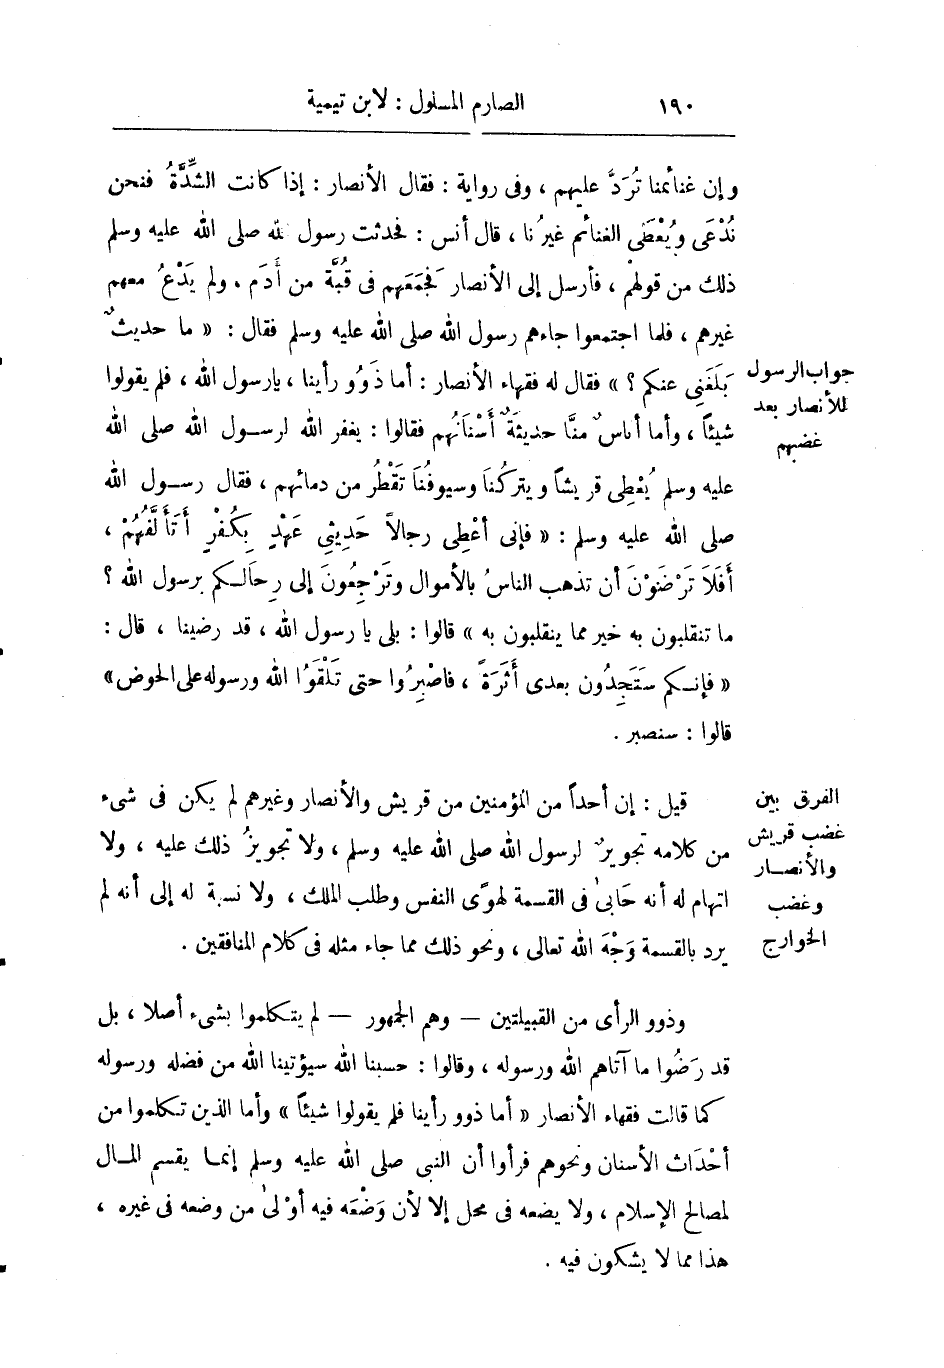 ١٩٠ الصارم المسلول : لابن تيمية
وإن غنائمنا تُرَدّ عليهم ، وفى رواية : فقال الأنصار : إذا كانت الشِّدَّةُ فنحن
نُدْعَى ويُعْطَى الغنائم غيرُنا ، قال أنس : فحدثت رسول لله صلى الله عليه وسلم
ذلك من قولهْم ، فأرسل إلى الأنصار فجَمَعَهم فى قُبَّة من أَدَم . ولم يَدْعُ معهم
غيرهم ، فلما اجتمعوا جاءهم رسول الله صلى الله عليه وسلم فقال : « ما حديثٌ
بَلَغَنِى عنكم ؟ » فقال له فقهاء الأنصار : أما ذَوُو رأينا ، يارسول الله ، فلم يقولوا
شيئاً ، وأما أناسٌ منَّا حديثةٌ أَسْنَانُهم فقالوا : يغفر الله لرسول الله صلى الله
عليه وسلم يُعْطِى قريشاً ويتركُنَا وسيوفُنَا تَقْطُر من دمائهم ، فقال رسول الله
صلى الله عليه وسلم : « فإنى أعْطِى رجالاً حَدِيثِى عَهْدٍ بِكُفْرٍ أَتَأَلَّفُهُمْ ،
أَفَلَا تَرْضَوْنَ أن تذهب الناسُ بالأموال وتَرْجِعُونَ إلى رِحَالكم برسول الله ؟
ما تنقلبون به خير مما ينقلبون به » قالوا : بلى يا رسول الله ، قد رضينا ، قال :
« فإنكم سَتَجِدُون بعدى أَثَرَةً ، فاصْبِرُوا حتى تَلْقَوُا الله ورسوله على الحوض »
قالوا : سنصبر .
جواب الرسول
للأنصار بعد
غضبهم
قيل : إن أحداً من المؤمنين من قريش والأنصار وغيرهم لم يكن فى شىء
من كلامه تجويرٌ لرسول الله صلى الله عليه وسلم ، ولا تجويزُ ذلك عليه ، ولا
اتهام له أنه حَابىٰ فى القسمة لهوًى النفس وطلب الملك ، ولا نسبة له إلى أنه لم
يرد بالقسمة وَجْهَ الله تعالى ، ونحو ذلك مما جاء مثله فى كلام المنافقين .
الفرق بين
غضب قريش
والأنصار
وغضب
الخوارج
وذوو الرأى من القبيلتين — وهم الجمهور — لم يتكلموا بشىء أصلا ، بل
قد رَضُوا ما آتاهم الله ورسوله ، وقالوا : حسبنا الله سيؤتينا الله من فضله ورسوله
كما قالت فقهاء الأنصار « أما ذوو رأينا فلم يقولوا شيئاً » وأما الذين تكلموا من
أحْدَاث الأسنان ونحوهم فرأوا أن النبى صلى الله عليه وسلم إنما يقسم المال
لمصالح الإسلام ، ولا يضعه فى محل إلا لأن وَضْعَه فيه أوْلىٰ من وضعه فى غيره ،
هذا مما لا يشكون فيه .